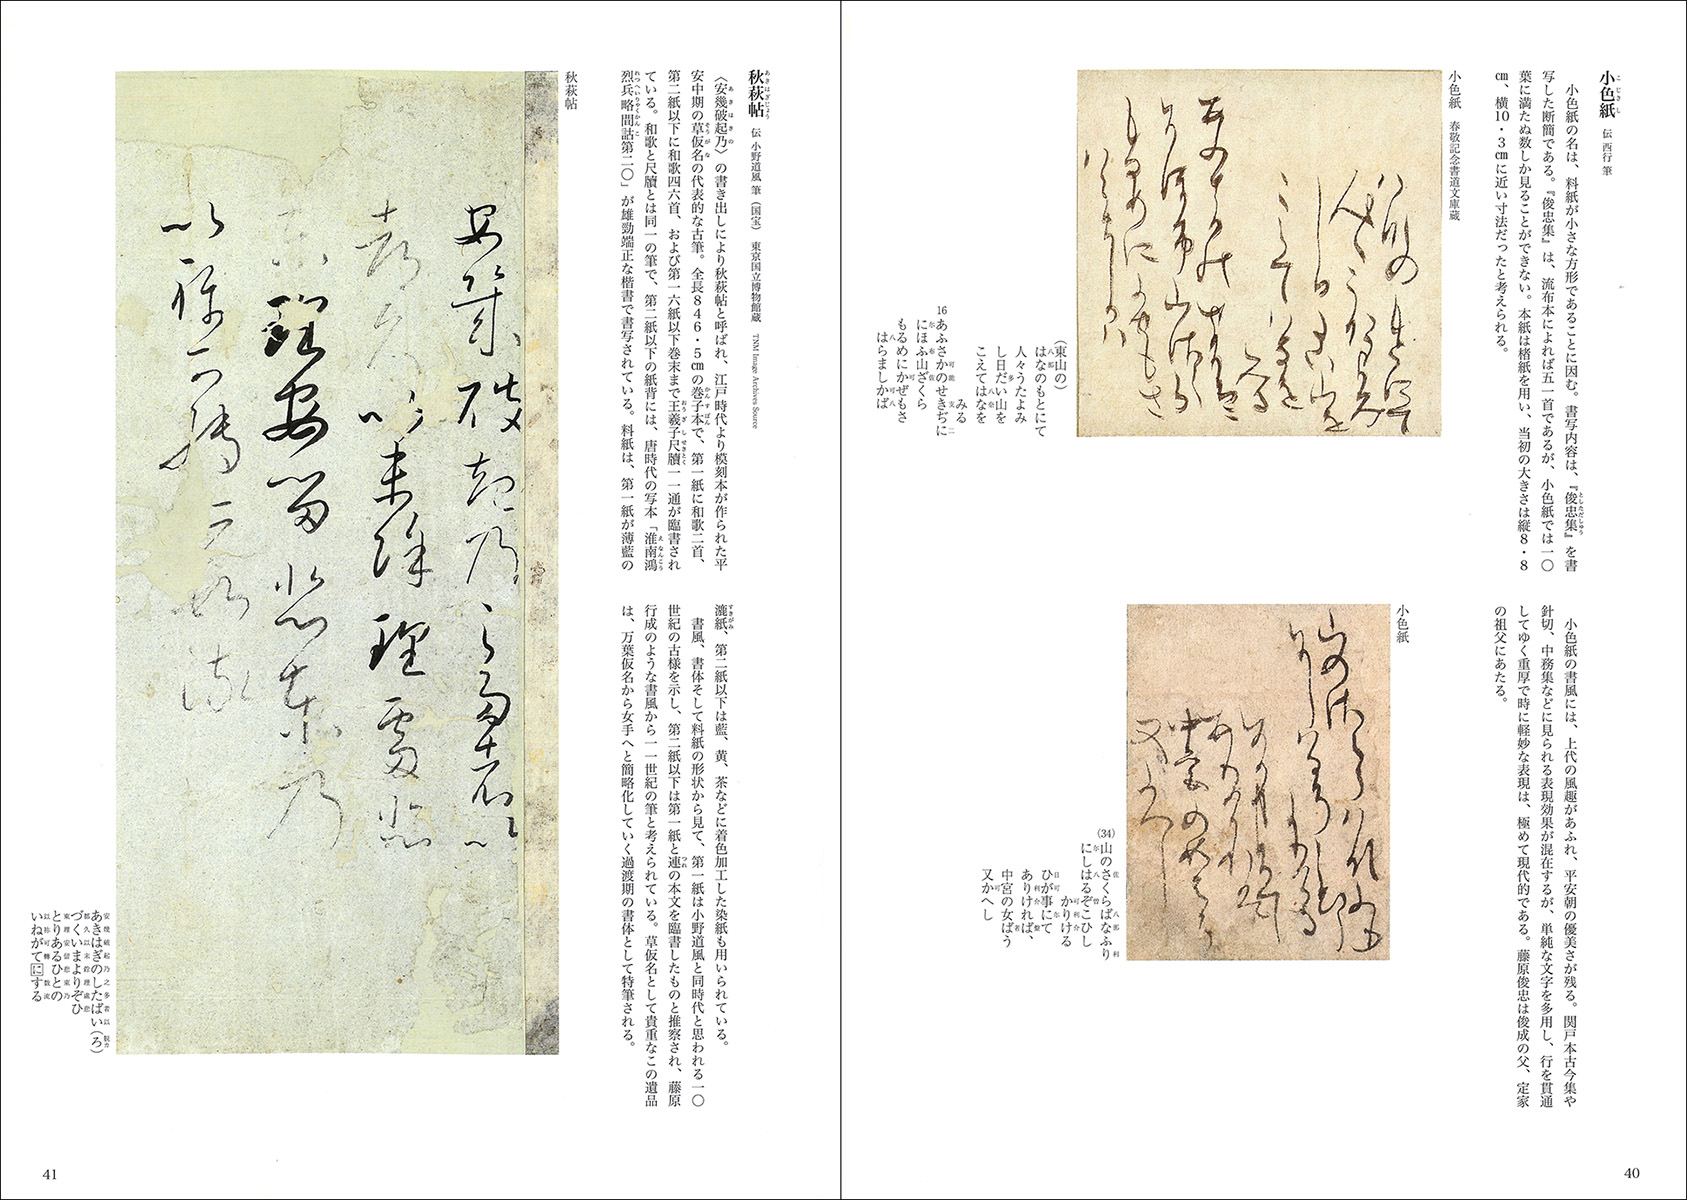 小色紙 伝 西行 筆
小色紙の名は、料紙が小さな方形であることに因む。書写内容は、『俊忠集』を書
写した断簡である。『俊忠集』は、流布本によれば五一首であるが、小色紙では一〇
葉に満たぬ数しか見ることができない。本紙は楮紙を用い、当初の大きさは縦8・8
㎝、横10・3㎝に近い寸法だったと考えられる。
小色紙の書風には、上代の風趣があふれ、平安朝の優美さが残る。関戸本古今集や
針切、中務集などに見られる表現効果が混在するが、単純な文字を多用し、行を貫通
してゆく重厚で時に軽妙な表現は、極めて現代的である。藤原俊忠は俊成の父、定家
の祖父にあたる。
小色紙 春敬記念書道文庫蔵
(東山の)
はなのもとにて
人々うたよみ
し日だい山を
こえてはなを
みる
16 あふさかのせきぢに
にほふ山ざくら
もるめにかぜもさ
はらましかば
小色紙
(34) 山のさくらばなふり
にしはるぞこひし
かりける
ひが事にて
ありければ、
中宮の女ばう
又かへし
40
秋萩帖 伝 小野道風 筆 (国宝) 東京国立博物館蔵 TNM Image Archives Source
〈安幾破起乃〉の書き出しにより秋萩帖と呼ばれ、江戸時代より模刻本が作られた平
安中期の草仮名の代表的な古筆。全長846・5㎝の巻子本で、第一紙に和歌二首、
第二紙以下に和歌四六首、および第一六紙以下巻末まで王羲子尺牘一一通が臨書され
ている。和歌と尺牘とは同一の筆で、第二紙以下の紙背には、唐時代の写本「淮南鴻
烈兵略間詁第二〇」が雄勁端正な楷書で書写されている。料紙は、第一紙が薄藍の
漉紙、第二紙以下は藍、黄、茶などに着色加工した染紙も用いられている。
書風、書体そして料紙の形状から見て、第一紙は小野道風と同時代と思われる一〇
世紀の古様を示し、第二紙以下は第一紙と連の本文を臨書したものと推察され、藤原
行成のような書風から一一世紀の筆と考えられている。草仮名として貴重なこの遺品
は、万葉仮名から女手へと簡略化していく過渡期の書体として特筆される。
秋萩帖
安幾破起乃之多者以
都久以末餘理處悲
東理安留悲東乃
以祢可轉数流
あきはぎのしたばい(ろ)
づくいまよりぞひ
とりあるひとの
いねがてにする
41